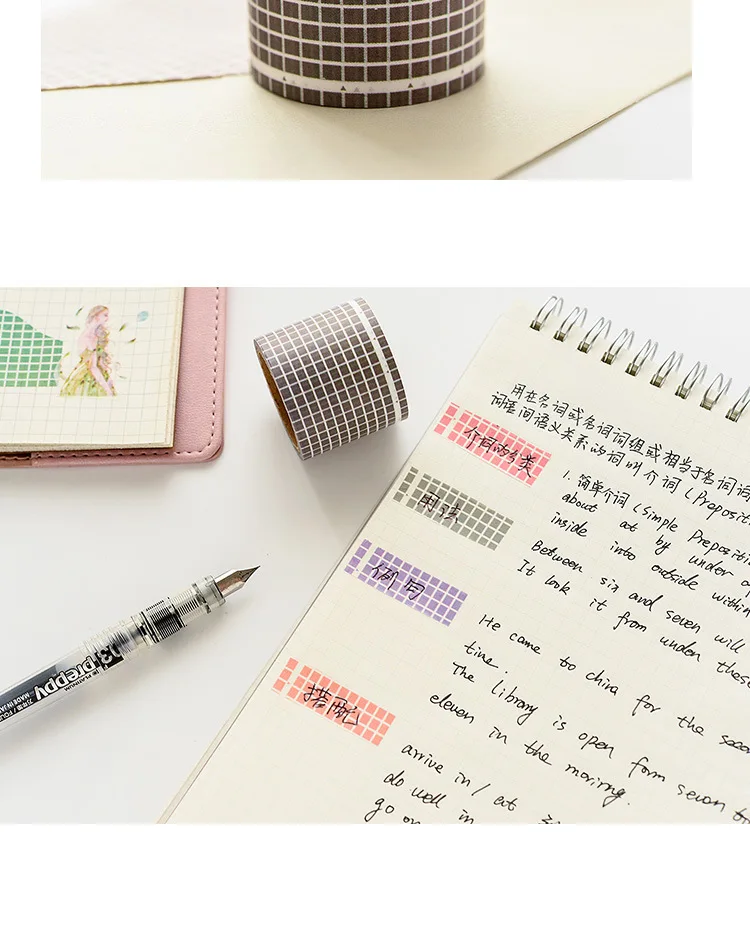 用在名词或名词词组或相当于名词词
词语间语义关系的词叫介词(Preposit
介词的分类
1. 简单介词(Simple Prepositi
about at by under
inside into outside within
用法
Between six and seven will
It look it from under these
例句
He came to china for the seco
time.
The library is open form seven to
eleven in the morirng.
搭配
arrive in / at
do well in
go on
03 preppy
PLATINUM
MADE IN JA